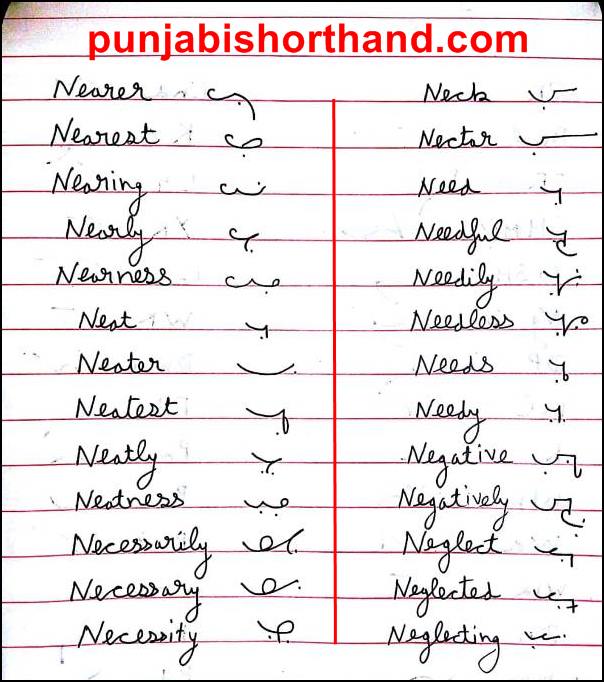 punjabishorthand.com
Nearer Neck
Nearest Nectar
Nearing Need
Nearly Needful
Nearness Needily
Neat Needless
Neater Needs
Neatest Needy
Neatly Negative
Neatness Negatively
Necessarily Neglect
Necessary Neglected
Necessity Neglecting